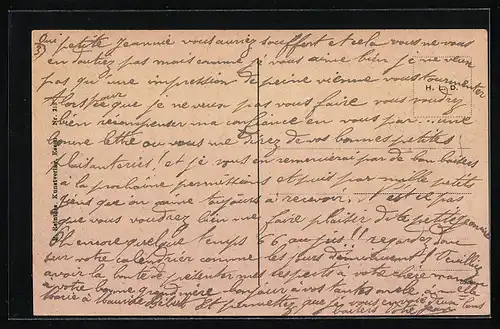 3) Oui petite Jeannie vous auriez souffert et cela vous ne vous
en doutiez pas mais comme je vous aime bien je ne veux
pas qu'une impression de peine vienne vous tourmenter
Alors par ce que je ne veux pas vous faire vous voudrez
bien récompenser ma confiance en vous par une
bonne lettre ou vous me direz de vos bonnes petites
plaisanteries et je vous en remercierai par de bon baisers
à la prochaine permission et puis par mille petits
riens que on aime toujours à recevoir. N'est ce pas
que vous voudrez bien me faire plaisir dite petite Jeannie
Oh encore quelque temps 66 au jus!! regardez donc
sur votre calendrier comme les jours diminuent! Veuillez
avoir la bonté de présenter mes respects à votre chère maman
à votre bonne grand mère bonjour à vos tantes oncle
Et permettez que je vous envoie
baisers Votre
H. L. D.
Kunstverlag
Nr.